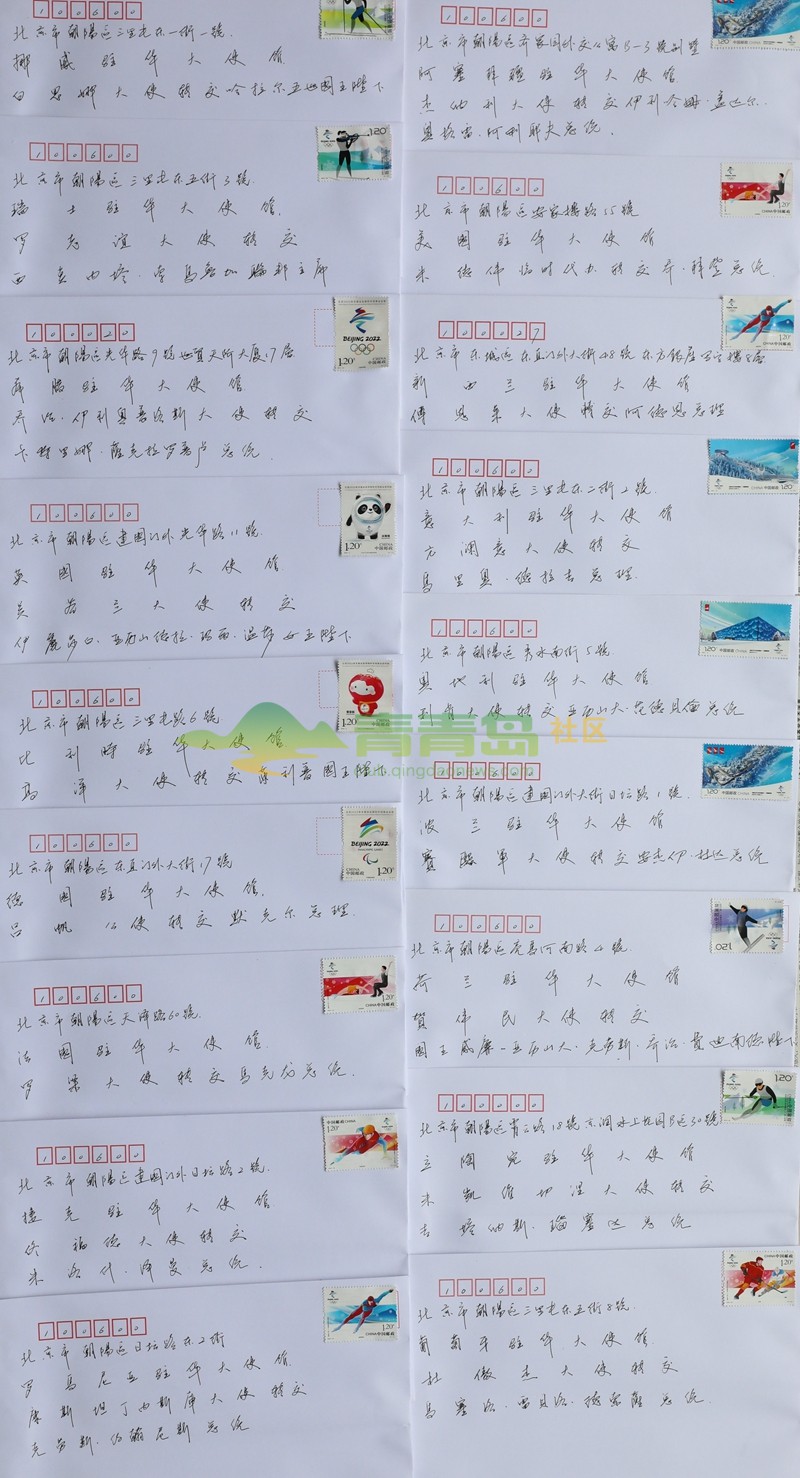 100600
北京市朝陽區三里屯东一街一號
挪威駐华大使馆
白思娜大使转交哈拉尔五世国王陛下
100600
北京市朝陽區三里屯东五街3號
瑞士駐华大使馆
罗志谊大使转交
西蒙内塔·索马鲁加联邦主席
100020
北京市朝陽區光华路9號世贸天阶大厦17层
希腊駐华大使馆
乔治·伊利奥普洛斯大使转交
卡特里娜·薩克拉罗普卢总统
100600
北京市朝陽區建国门外光华路11號
英国駐华大使馆
吴若兰大使转交
伊麗莎白·亚历山德拉·玛丽·温莎女王陛下
100600
北京市朝陽區三里屯路6號
比利時駐华大使馆
高洋大使转交菲利普国王陛下
100600
北京市朝陽區东直门外大街17號
德国駐华大使馆
吕帆公使转交默克尔总理
100600
北京市朝陽區天泽路60號
法国駐华大使馆
罗梁大使转交马克龙总统
100600
北京市朝陽區建国门外日坛路2號
捷克駐华大使馆
佟福德大使转交
米洛什·泽曼总统
100600
北京市朝陽區日坛路东2街
罗马尼亚駐华大使馆
康斯坦丁内斯库大使转交
克劳斯·约翰尼斯总统
100600
北京市朝陽區齐家园外交公寓B-3號别墅
阿塞拜疆駐华大使馆
杰纳利大使转交伊利哈姆·盖达尔
奥格雷·阿利耶夫总统
100600
北京市朝陽區安家楼路55號
美国駐华大使馆
米德伟临时代办转交乔·拜登总统
100027
北京市东城區东直门外大街48號东方银座写字楼8层
新西兰駐华大使馆
傅恩莱大使转交阿德恩总理
100600
北京市朝陽區三里屯东二街2號
意大利駐华大使馆
方澜意大使转交
马里奥·德拉吉总理
100600
北京市朝陽區秀水南街5號
奥地利駐华大使馆
利肯大使转交亚历山大·范德贝伦总统
100600
北京市朝陽區建国门外大街日坛路1號
波兰駐华大使馆
赛熙军大使转交安杰伊·杜达总统
100600
北京市朝陽區亮马河南路4號
荷兰駐华大使馆
贺伟民大使转交
国王威廉-亚历山大·克劳斯·乔治·费迪南德陛下
100600
北京市朝陽區霄云路18號京润水上花园B區30號
立陶宛駐华大使馆
米凯维切涅大使转交
吉塔纳斯·瑙塞达总统
100600
北京市朝陽區三里屯东五街8號
葡萄牙駐华大使馆
杜傲杰大使转交
马塞洛·雷贝洛·德索薩总统
BEIJING 2022
1.20
中国邮政 CHINA
青青岛社区
club.qingdaonews.com